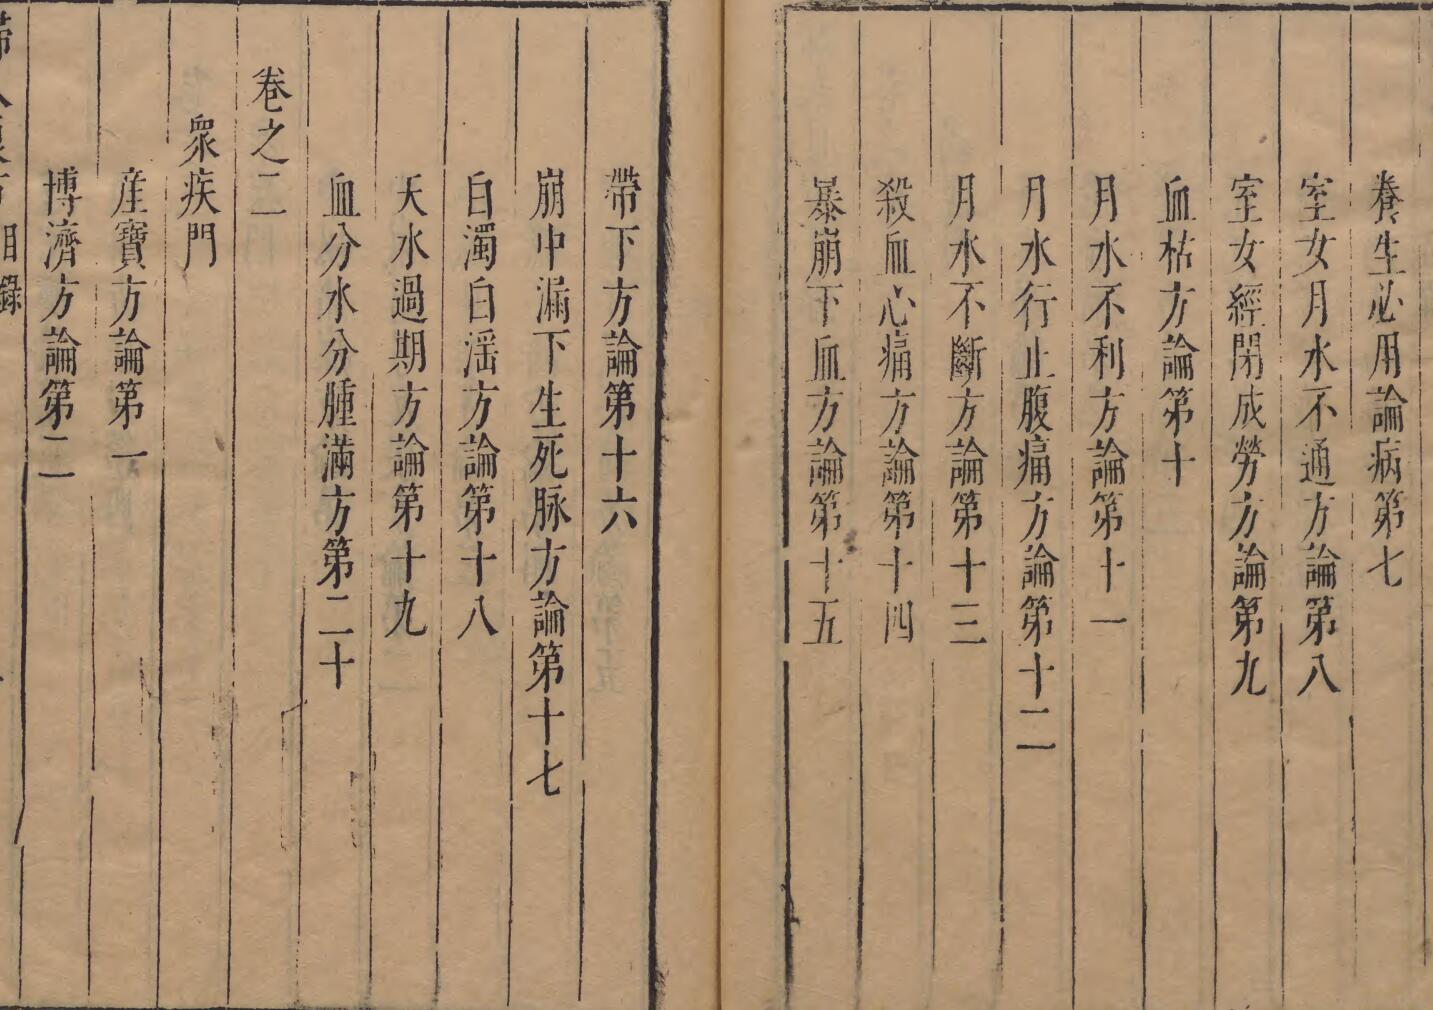 養生必用論病第七
室女月水不通方論第八
室女經閉成勞方論第九
血枯方論第十
月水不利方論第十一
月水行止腹痛方論第十二
月水不斷方論第十三
殺血心痛方論第十四
暴崩下血方論第十五
帶下方論第十六
崩中漏下生死脉方論第十七
白濁白淫方論第十八
天水過期方論第十九
血分水分腫滿方第二十
卷之二
衆疾門
産寶方論第一
博濟方論第二
目錄